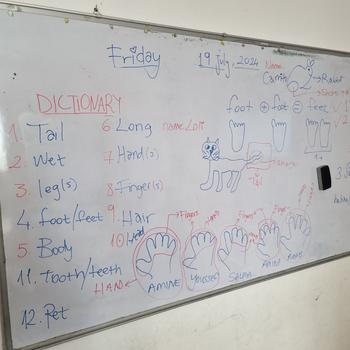 Friday
19 july, 2024
Name
Rabbit
foot + foot = feet
DICTIONARY
1. Tail
2. Wet
3. leg(s)
4. foot/feet
5. Body
11. Tooth/teeth
12. Pet
6 Long
7 Hand(s)
8 Finger(s)
9 Hair
10
Tail
HAND
AMINE
YOUSSEF
SALMA